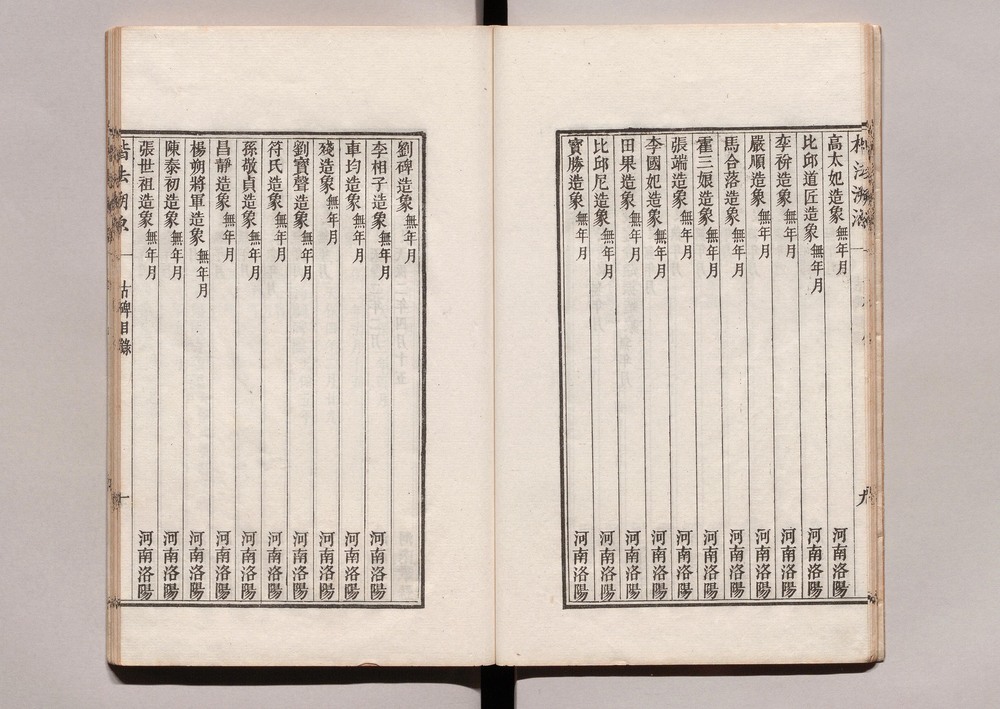 高太妃造象 無年月 河南洛陽
比邱道匠造象 無年月 河南洛陽
李𥙷造象 無年月 河南洛陽
嚴順造象 無年月 河南洛陽
馬合落造象 無年月 河南洛陽
霍三娘造象 無年月 河南洛陽
張端造象 無年月 河南洛陽
李國妃造象 無年月 河南洛陽
田果造象 無年月 河南洛陽
比邱尼造象 無年月 河南洛陽
寶勝造象 無年月 河南洛陽
劉碑造象 無年月
李相子造象 無年月 河南洛陽
車均造象 無年月 河南洛陽
殘造象 無年月 河南洛陽
劉寶聲造象 無年月 河南洛陽
符氏造象 無年月 河南洛陽
孫敬貞造象 無年月 河南洛陽
昌靜造象 無年月 河南洛陽
楊朔將軍造象 無年月 河南洛陽
陳泰初造象 無年月 河南洛陽
張世祖造象 無年月 河南洛陽
古碑目錄